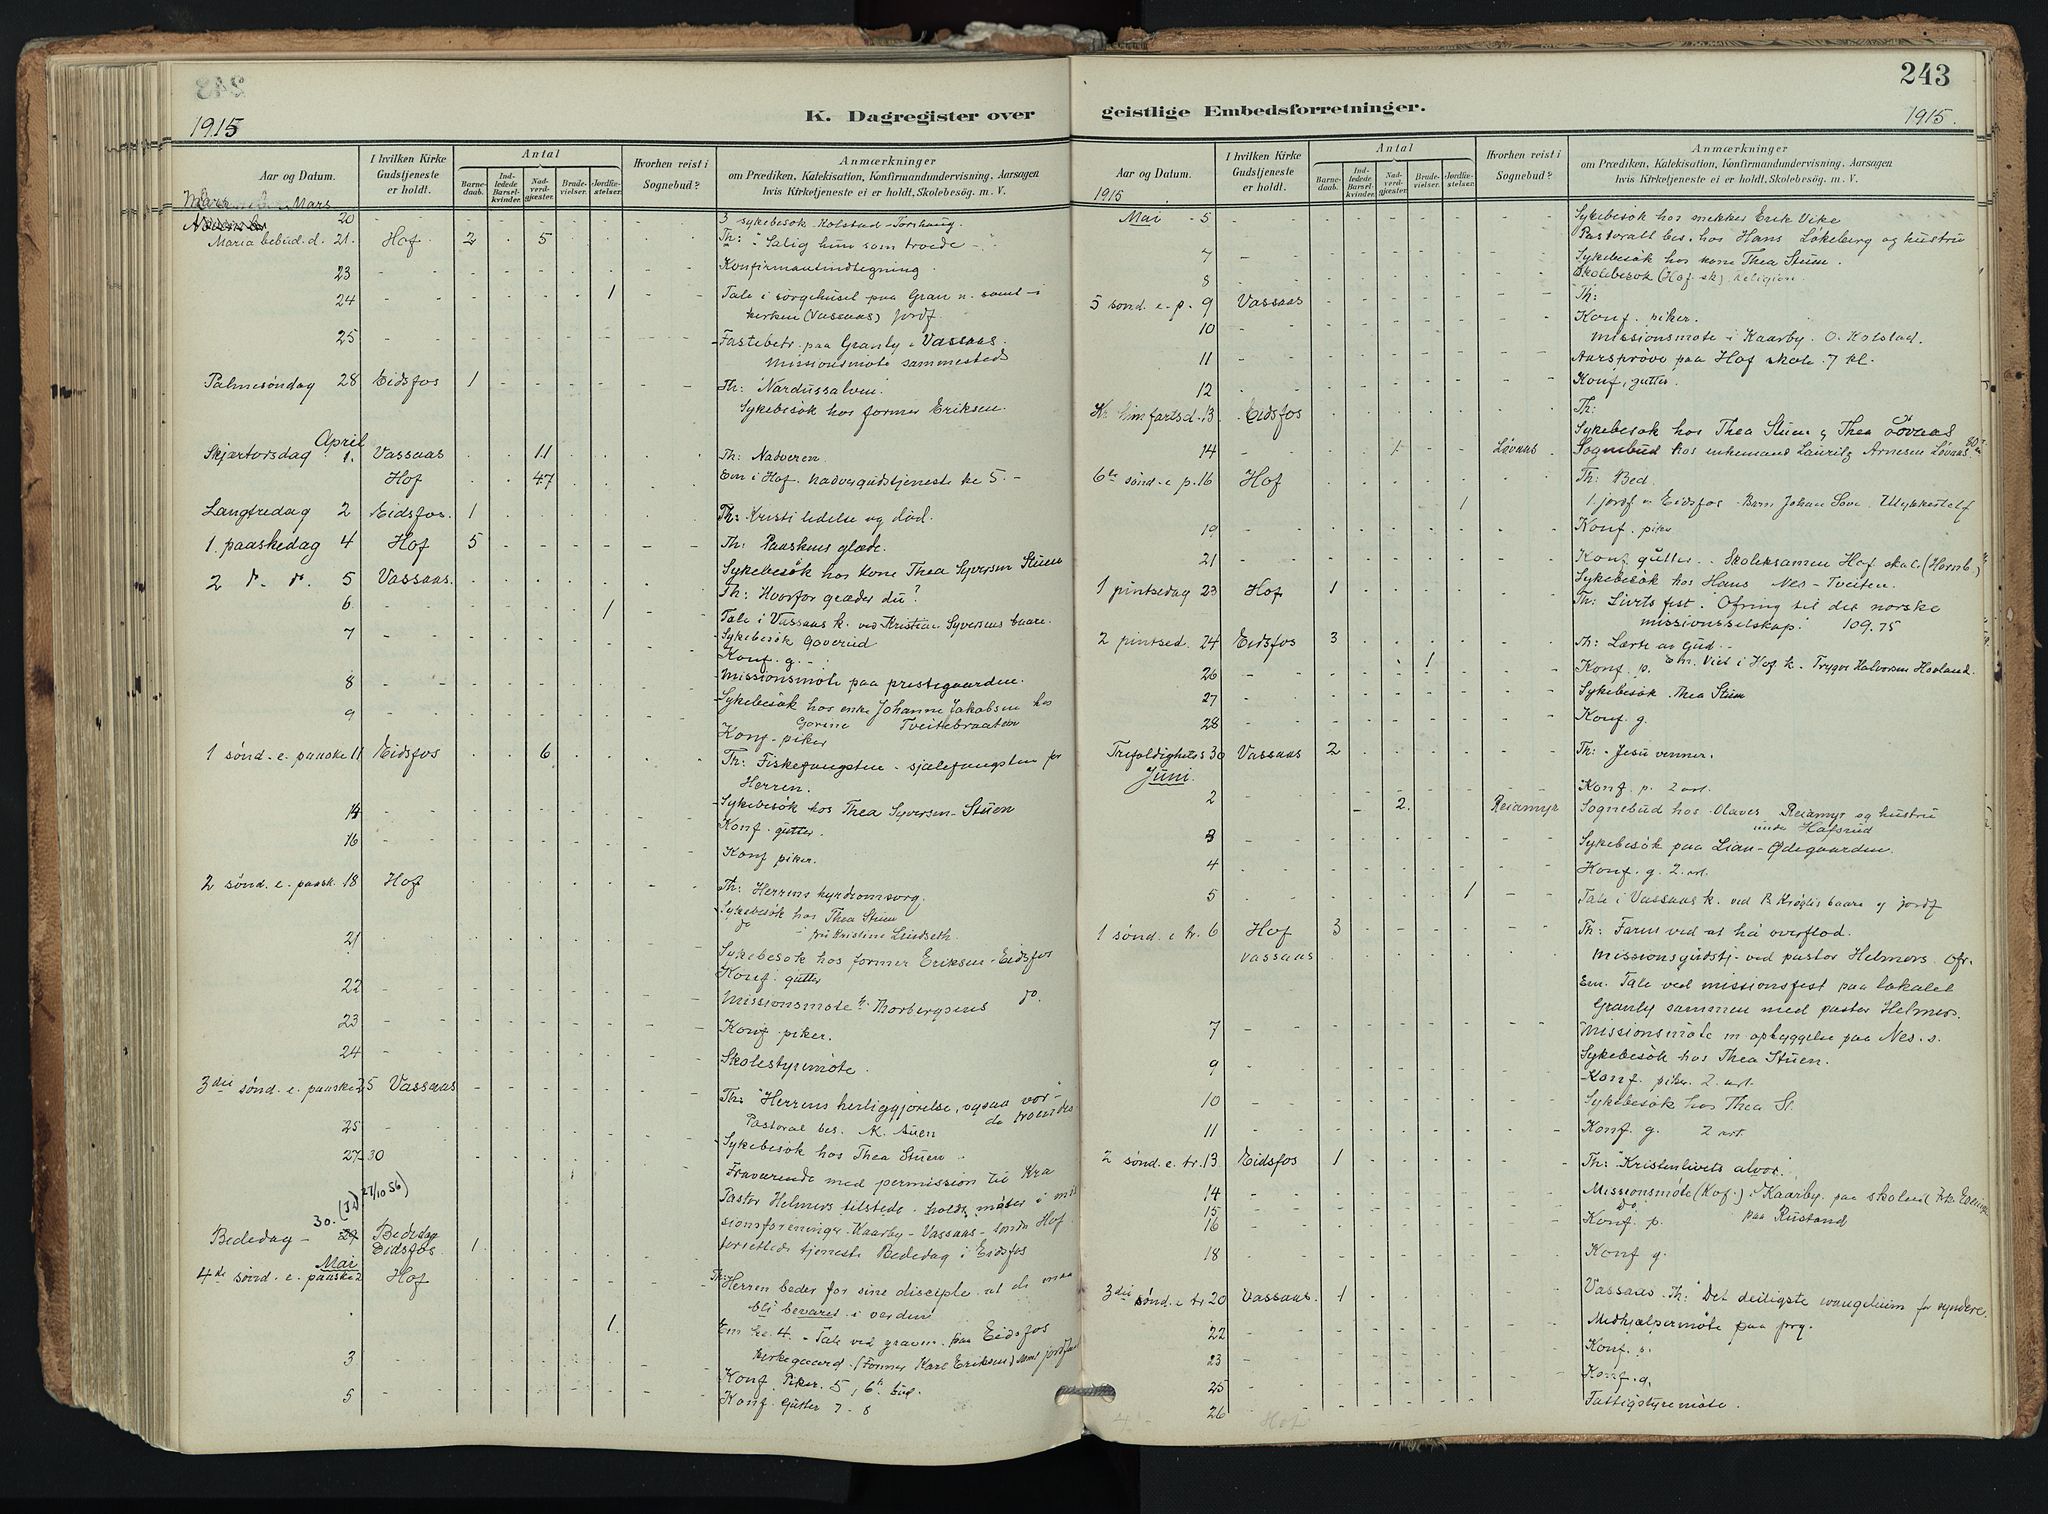 243
K. Dagregister over
geistlige Embedsforretninger.
1915
1915.
Aar og Datum.
I hvilken Kirke Gudstjeneste er holdt.
Antal
Barnedaab.
Indledede Barselkvinder.
Nadverdgjæster.
Brudevielser.
Jordfæstelser.
Hvorhen reist i Sognebud?
Anmærkninger
om Prædiken, Katekisation, Konfirmandundervisning, Aarsagen
hvis Kirketjeneste ei er holdt, Skolebesøg. m. V.
Mars
20 - - - - - - - 3 sykebesøk Holstad - Torshaug
Maria bebud. d. 21. Hof 2 5 Th: "Salig hun som troede - "
23 Konfirmantindtegning.
24 1 Tale i sørgehuset paa Gran n. samt i
kirken (Vassaas) jordf.
25 Fastebetr. paa Granly i Vassaas.
Missionsmøte sammesteds
Palmesøndag 28 Eidsfos 1 Th: Nardussalven.
Sykebesøk hos former Eriksen.
April
Skjærtorsdag 1. Vassaas 11 Th: Nadveren.
Hof 47 Em i Hof. Nadvergudstjeneste kl 5. -
Langfredag 2 Eidsfos. 1 Th: Kristi lidelse og død.
1. paaskedag 4 Hof 5 Th: Paaskens glæde.
Sykebesøk hos kone Thea Syversen Stuen
2 d. d. 5 Vassaas. Th: Hvorfor græder du?
6. 1 Tale i Vassaas k. ved Kristian Syversens baare.
7 Sykebesøk Goverud
Konf. g. -
8 Missionsmøte paa prestegaarden.
9 Sykebesøk hos enke Johanne Jakobsen hos
Tveitebraaten
Konf. piker
1 sønd. e. paaske 11 Eidsfos 6 Th: Fiskefangsten - sjælefangsten for
Herren.
14 Sykebesøk hos Thea Syversen - Stuen
Konf. gutter.
16 Konf piker.
2 sønd. e. paask. 18 Hof Th: Herrens hyrdeomsorg.
Sykebesøk hos Thea Stuen
do fru Kristine Lindseth.
21 Sykebesøk hos former Eriksen - Eidsfos
Konf. gutter
22 Missionsmøte h. Thorbergsens do.
23 Konf. piker.
24 Skolestyremøte.
3die sønd. e. paaske 25 Vassaas Th: "Herrens herliggjørelse, ogsaa vor - "
de troendes
25 Pastoral bes. K. Auen
Sykebesøk hos Thea Stuen.
27-30 Fraværende med permission til Kra
27/10 56)
Pastor Helmers tilstede - holdt møter i mis
sionsforeninger. Kaarby - Vassaas - søndre Hof.
30.
Bededag - 29 Bededag
Eidsfos. 1. forrettede tjeneste Bededag i Eidsfos
Mai
4de sønd. e. paaske 2 Hof Th: Herren beder for sine disciple at de maa
bli bevaret i verden
1. Em kl. 4. - Tale ved graven paa Eidsfos
3 kirkegaard. (Former Karl Eriksen) samt jordf
Konf. Piker. 5, 6te bud.
5 Konf. Gutter 7 - 8
Aar og Datum.
I hvilken Kirke Gudstjeneste er holdt.
Antal
Barnedaab.
Indledede Barselkvinder.
Nadverdgjæster.
Brudevielser.
Jordfæstelser.
Hvorhen reist i Sognebud?
Anmærkninger
om Prædiken, Katekisation, Konfirmandundervisning, Aarsagen
hvis Kirketjeneste ei er holdt, Skolebesøg. m. V.
1915
Mai 5 Sykebesøk hos snekker Erik Vike
Pastoralt bes. hos Hans Løkeberg og hustru
7 Sykebesøk hos kone Thea Stuen.
8 Skolebesøk (Hof sk) religion.
5 sønd. e. p. 9 Vassaas Th:
10 Konf. piker.
Missionsmøte i Kaarby. O. Holstad.
11 Aarsprøve paa Hof skole. 7 kl.
12 Konf. gutter.
Kr. himfartsd. 13 Eidsfos Th:
Sykebesøk hos Thea Stuen og Thea Løvaas
14 1 Løvaas Sognebud hos enkemand Lauritz Arnesen Løvaas.
6te sønd. e p. 16 Hof Th: Bed.
1 1. jordf i Eidsfos - Barn Johan Sove. Ulykkestilf
19 Konf. piker
21 Konf. gutter. - Skoleksamen Hof skole (Hornb.)
Sykebesøk hos Hans Nes - Tveiten.
1 pintsedag 23 Hof 1 Th: Livets fest. Ofring til det norske
missionsselskap. 109.75
2 pintsed. 24 Eidsfos 3 Th: Lærte av Gud. -
26 1 Konf. p. Em. Viet i Hof k. Trygve Halvorsen Hovland.
27 Sykebesøk Thea Stuen
28 Konf. g.
Trefoldigheds 30 Vassaas 2 Th: - Jesu venner.
Juni.
Konf. p. 2 art.
2 2. Reiamyr Sognebud hos Olaves Reiamyr og hustru
under Hafsrud
3 Sykebesøk paa Lian - Ødegaarden.
4 Konf. g. 2. art.
5 1 Tale i Vassaas k. ved baare og jordf
1 sønd. e tr. 6 Hof 3 Th: Faren ved at ha overflod.
Vassaas Missionsgudstj. ved pastor Helmers. Ofr.
Em. Tale ved missionsfest paa lokalet
Granly sammen med pastor Helmers.
7 Missionsmøte m opbyggelse paa Nes. s.
9 Sykebesøk hos Thea Stuen.
Konf. piker. 2. art.
10 Sykebesøk hos Thea St.
11 Konf. g. 2 art.
2 sønd. e. tr. 13 Eidsfos 1 Th: "Kristenlivets alvor."
14 Missionsmøte (Hof.) i Kaarby. paa skolen
15 Do. paa Rustand
16 Konf. p.
18 Konf g.
3die sønd. e tr. 20 Vassaas. 1 Vassaas Th: "Det deiligste evangelium for syndere.
22 Medhjælpermøte paa prg.
23 Konf. p.
25 Konf. g.
26 Fattigstyremøte.
Hof